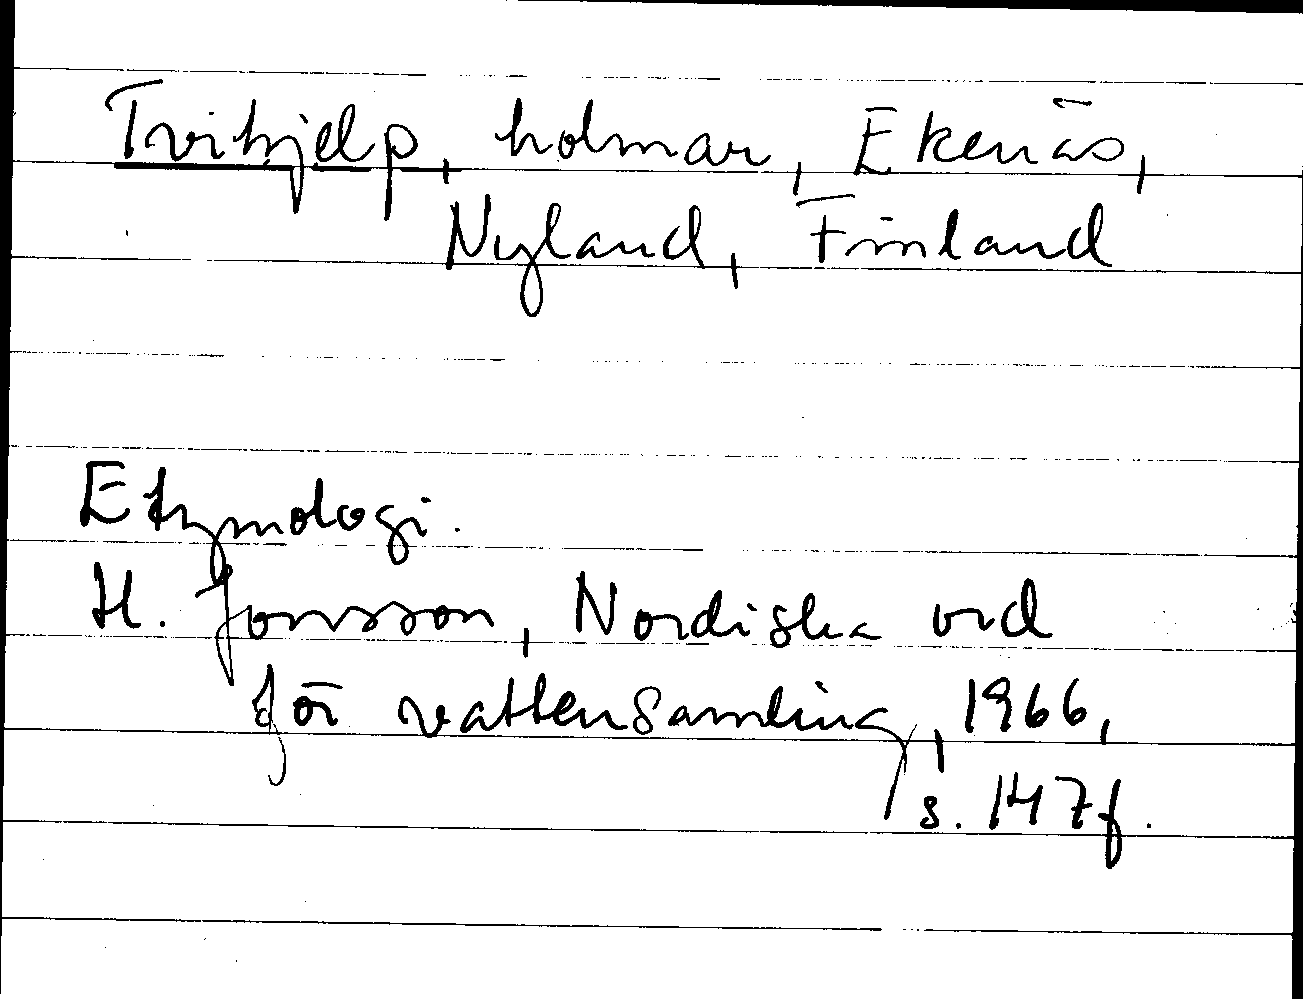 Tvihjelp, holmar, Ekenäs,
Nyland, Finland
Etymologi.
H. Jonsson, Nordiska ord
för vattensamling, 1966,
s. 147f.